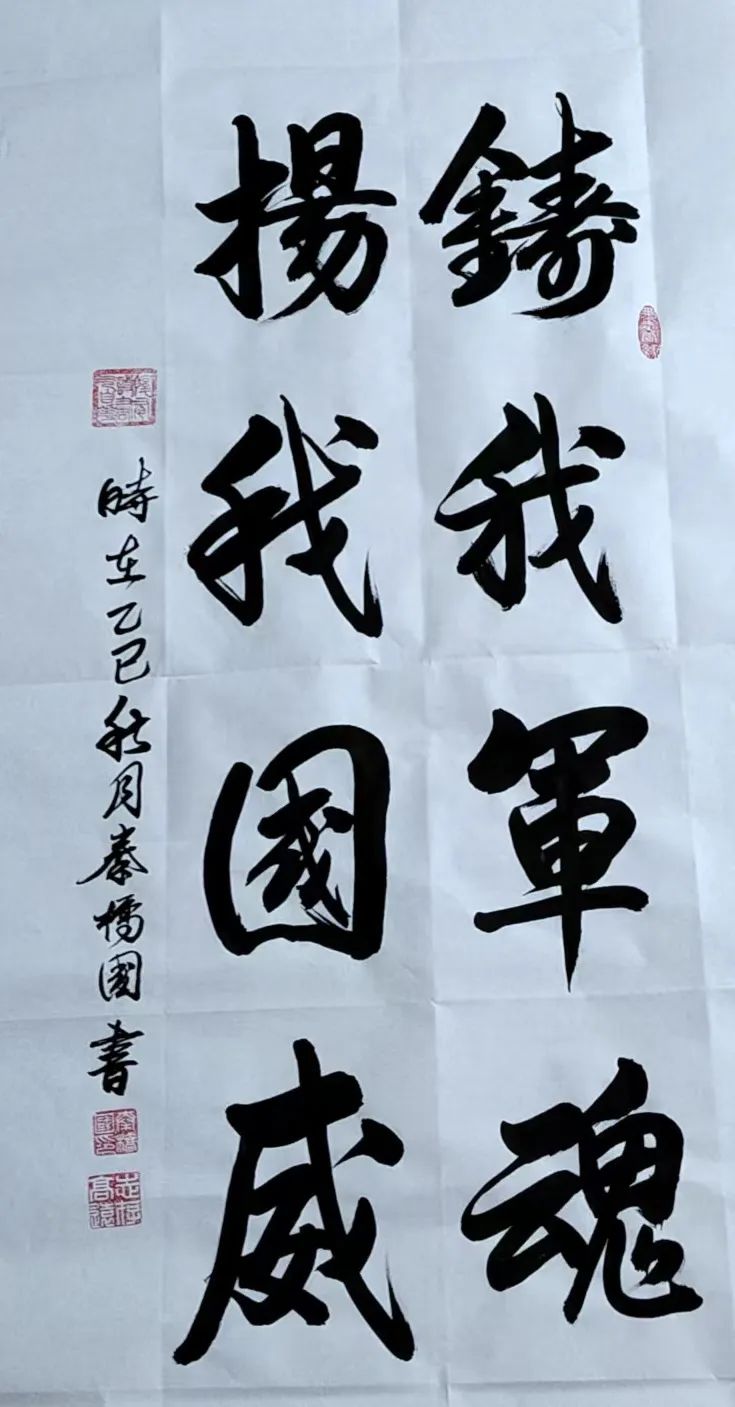 鑄我軍魂
揚我國威
時在乙巳秋月秦橋國書
志存高遠